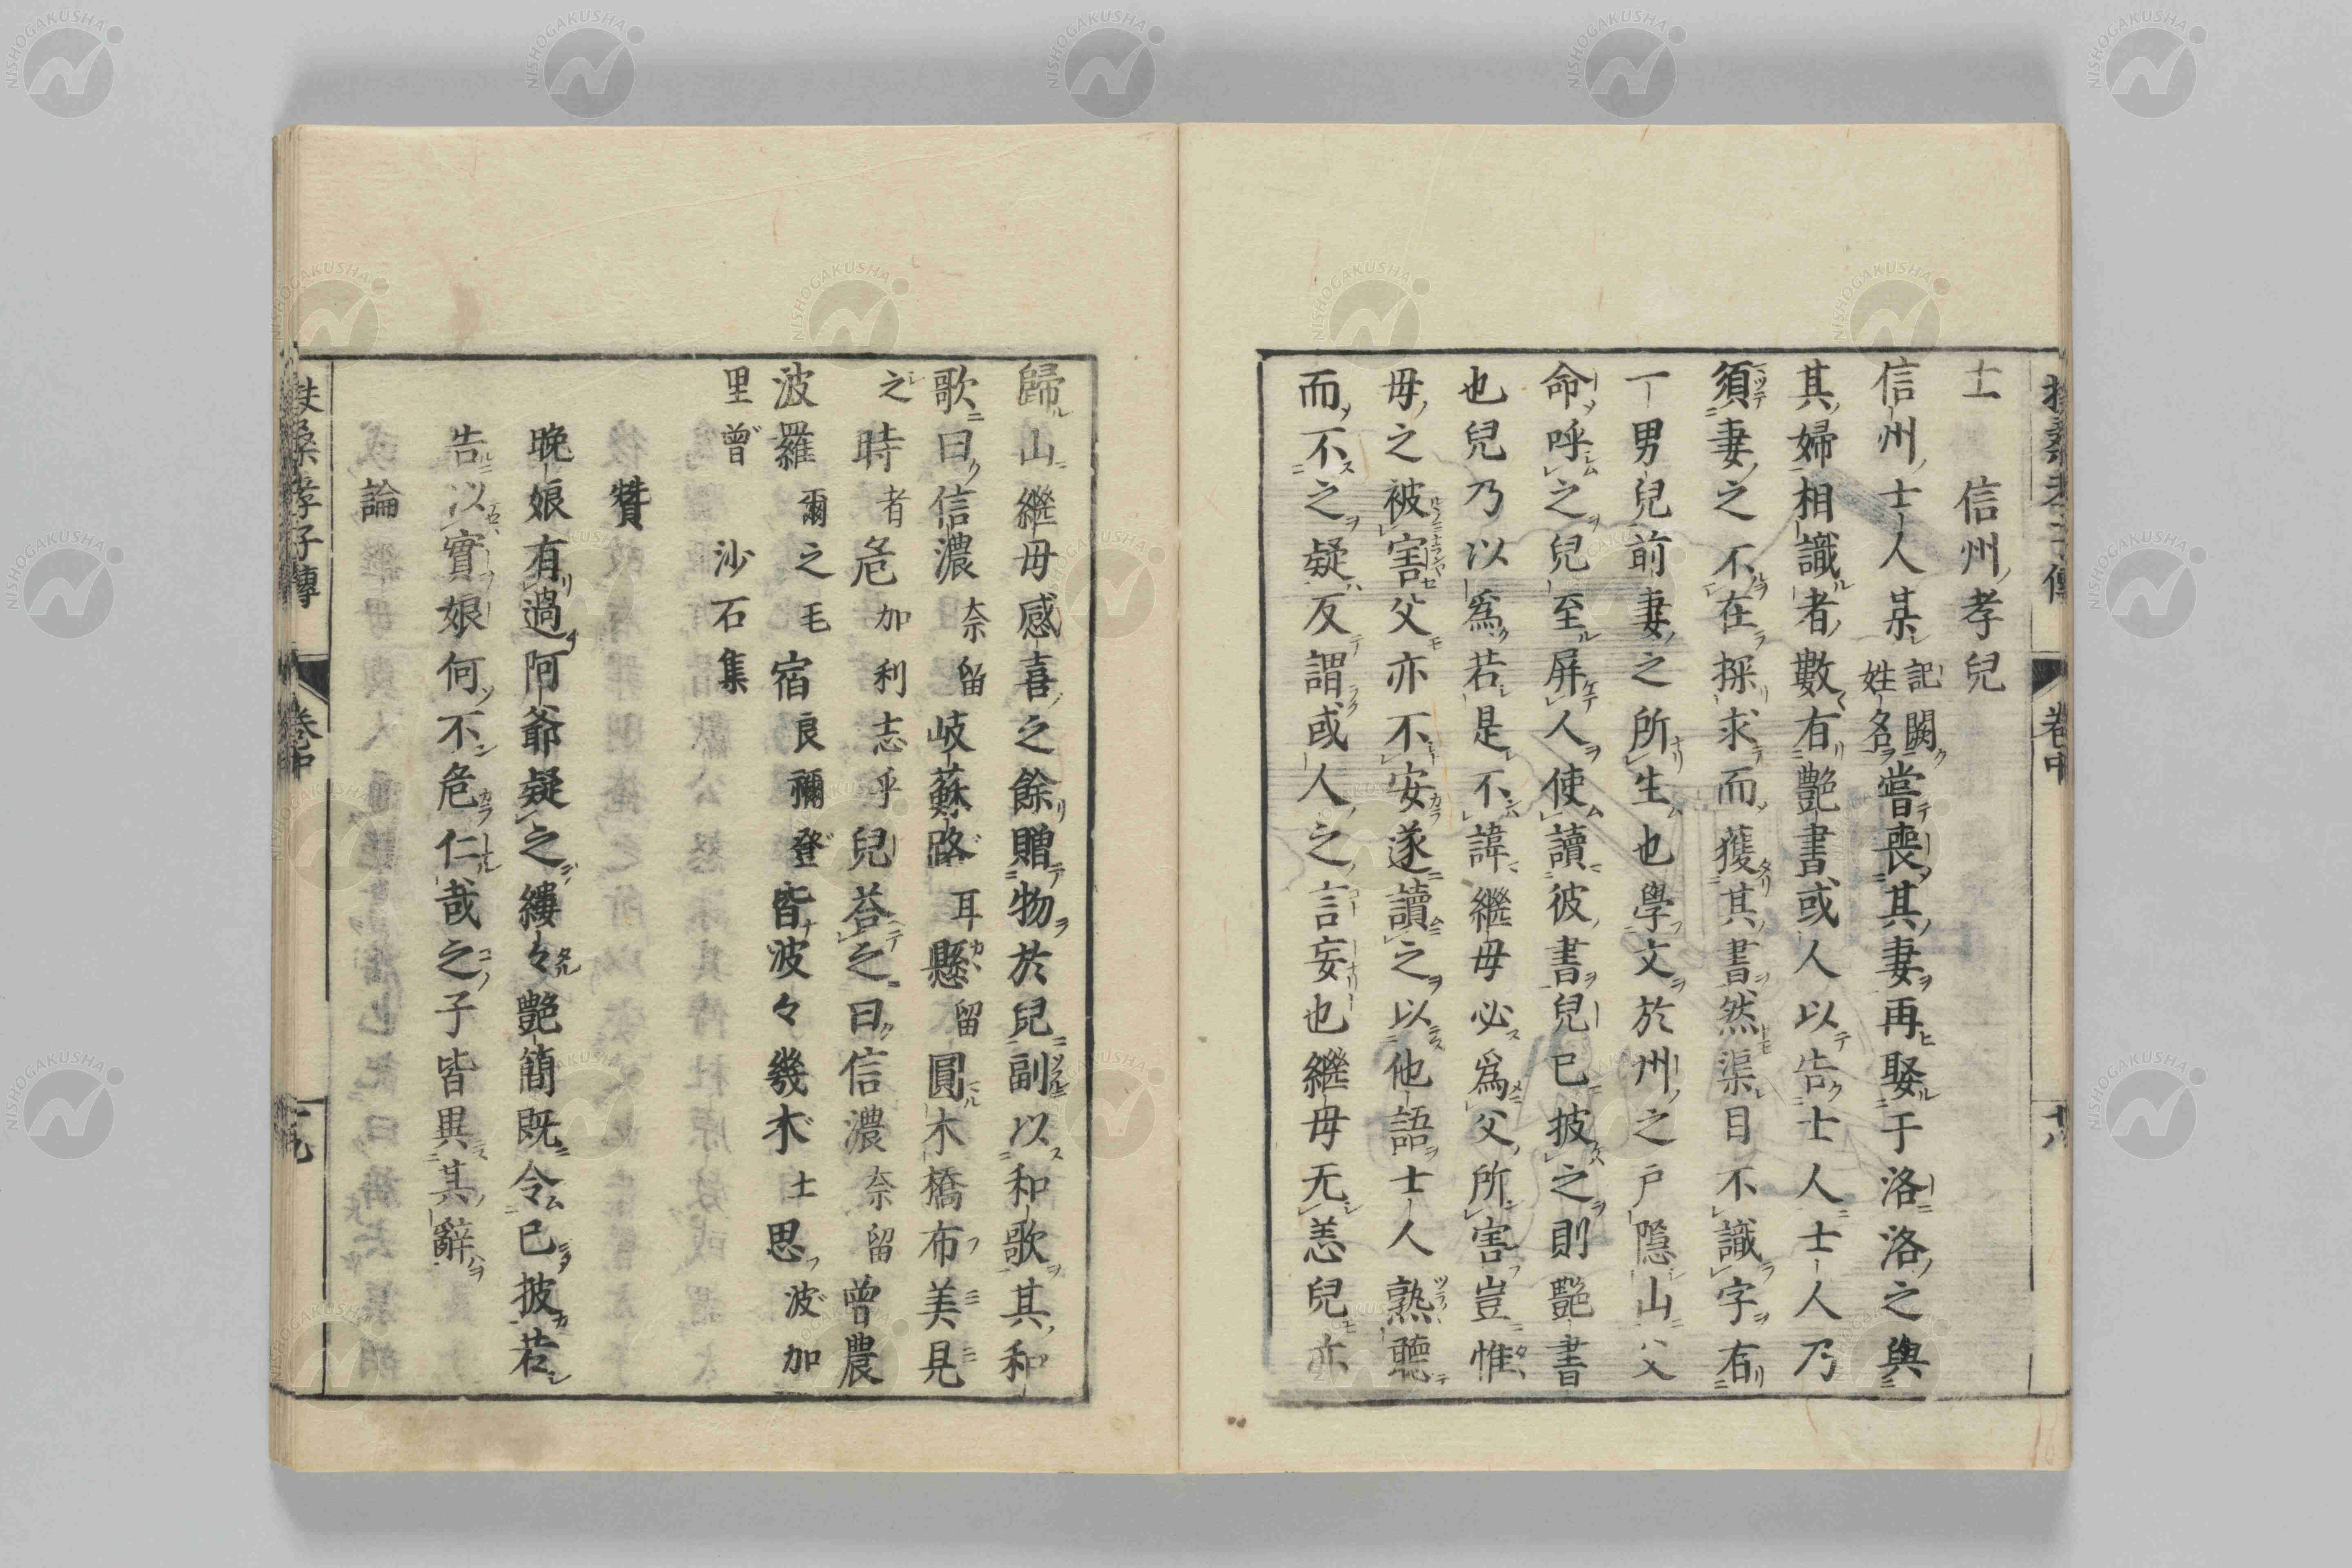 士 信州孝兒
信州士人某記闕姓名嘗喪其妻再娶于洛洛之與
其婦相識者數有艷書或人以告士人士人乃
須妻之不在探求而獲其書然渠目不識字有
一男兒前妻之所生也學文於州之戸隱山父
命呼之兒至屏人使讀彼書兒已披之則艷書
也兒乃以爲若是不諱繼母必爲父所害豈惟
母之被害父亦不安遂讀之以他語士人熟聽
而不之疑反謂或人之言妄也繼母无恙兒亦
歸山繼母感喜之餘贈物於兒副以和歌其和
歌曰信濃奈留岐蘇路耳懸留圓木橋布美見
之時者危加利志乎兒荅之曰信濃奈留曾農
波羅爾之毛宿良禰登皆波々幾木士思波加
里曾 沙石集
贊
晩娘有過阿爺疑之縷々艷簡既令已披若
告以實娘何不危仁哉之子皆異其辭
論
扶桑孝子傳 卷中 十八
扶桑孝子傳 卷中 十九
NISHOGAKUSHA